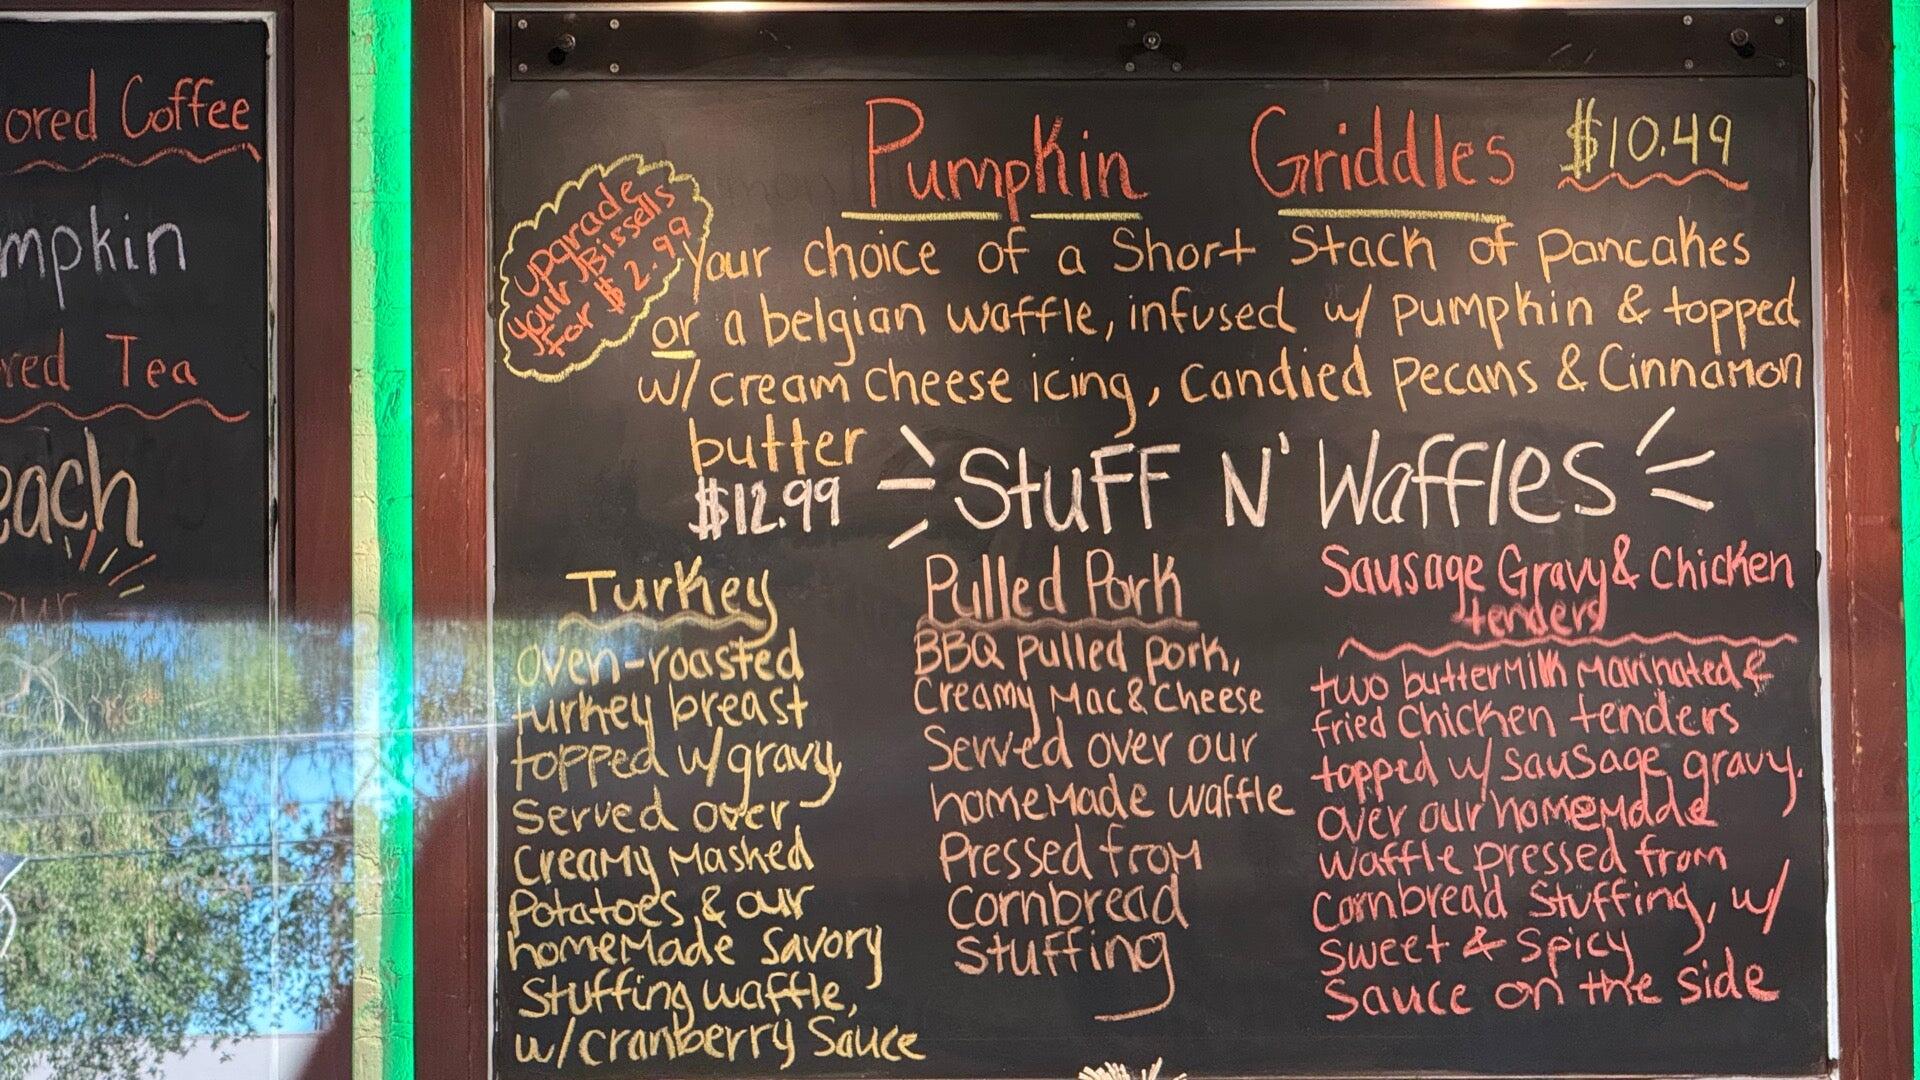 ored Coffee
mpkin
red Tea
each
Pumpkin Griddles $10.49
upgrade
your Bissells
for $2.99
Your choice of a Short Stack of pancakes
or a belgian waffle, infused w/ pumpkin & topped
w/ cream cheese icing, candied pecans & Cinnamon
butter
$12.99 Stuff N' Waffles
Turkey
oven-roasted
turkey breast
topped w/gravy,
Served over
creamy Mashed
Potatoes, & our
homemade savory
Stuffing waffle,
w/cranberry Sauce
Pulled Pork
BBQ pulled pork,
Creamy Mac & Cheese
Served over our
homemade waffle
Pressed from
Cornbread
Stuffing
Sausage Gravy & Chicken
tenders
two buttermilk Marinated &
fried chicken tenders
topped w/ sausage gravy.
over our homemade
Waffle pressed from
Cornbread Stuffing, w/
Sweet & Spicy
Sauce on the side